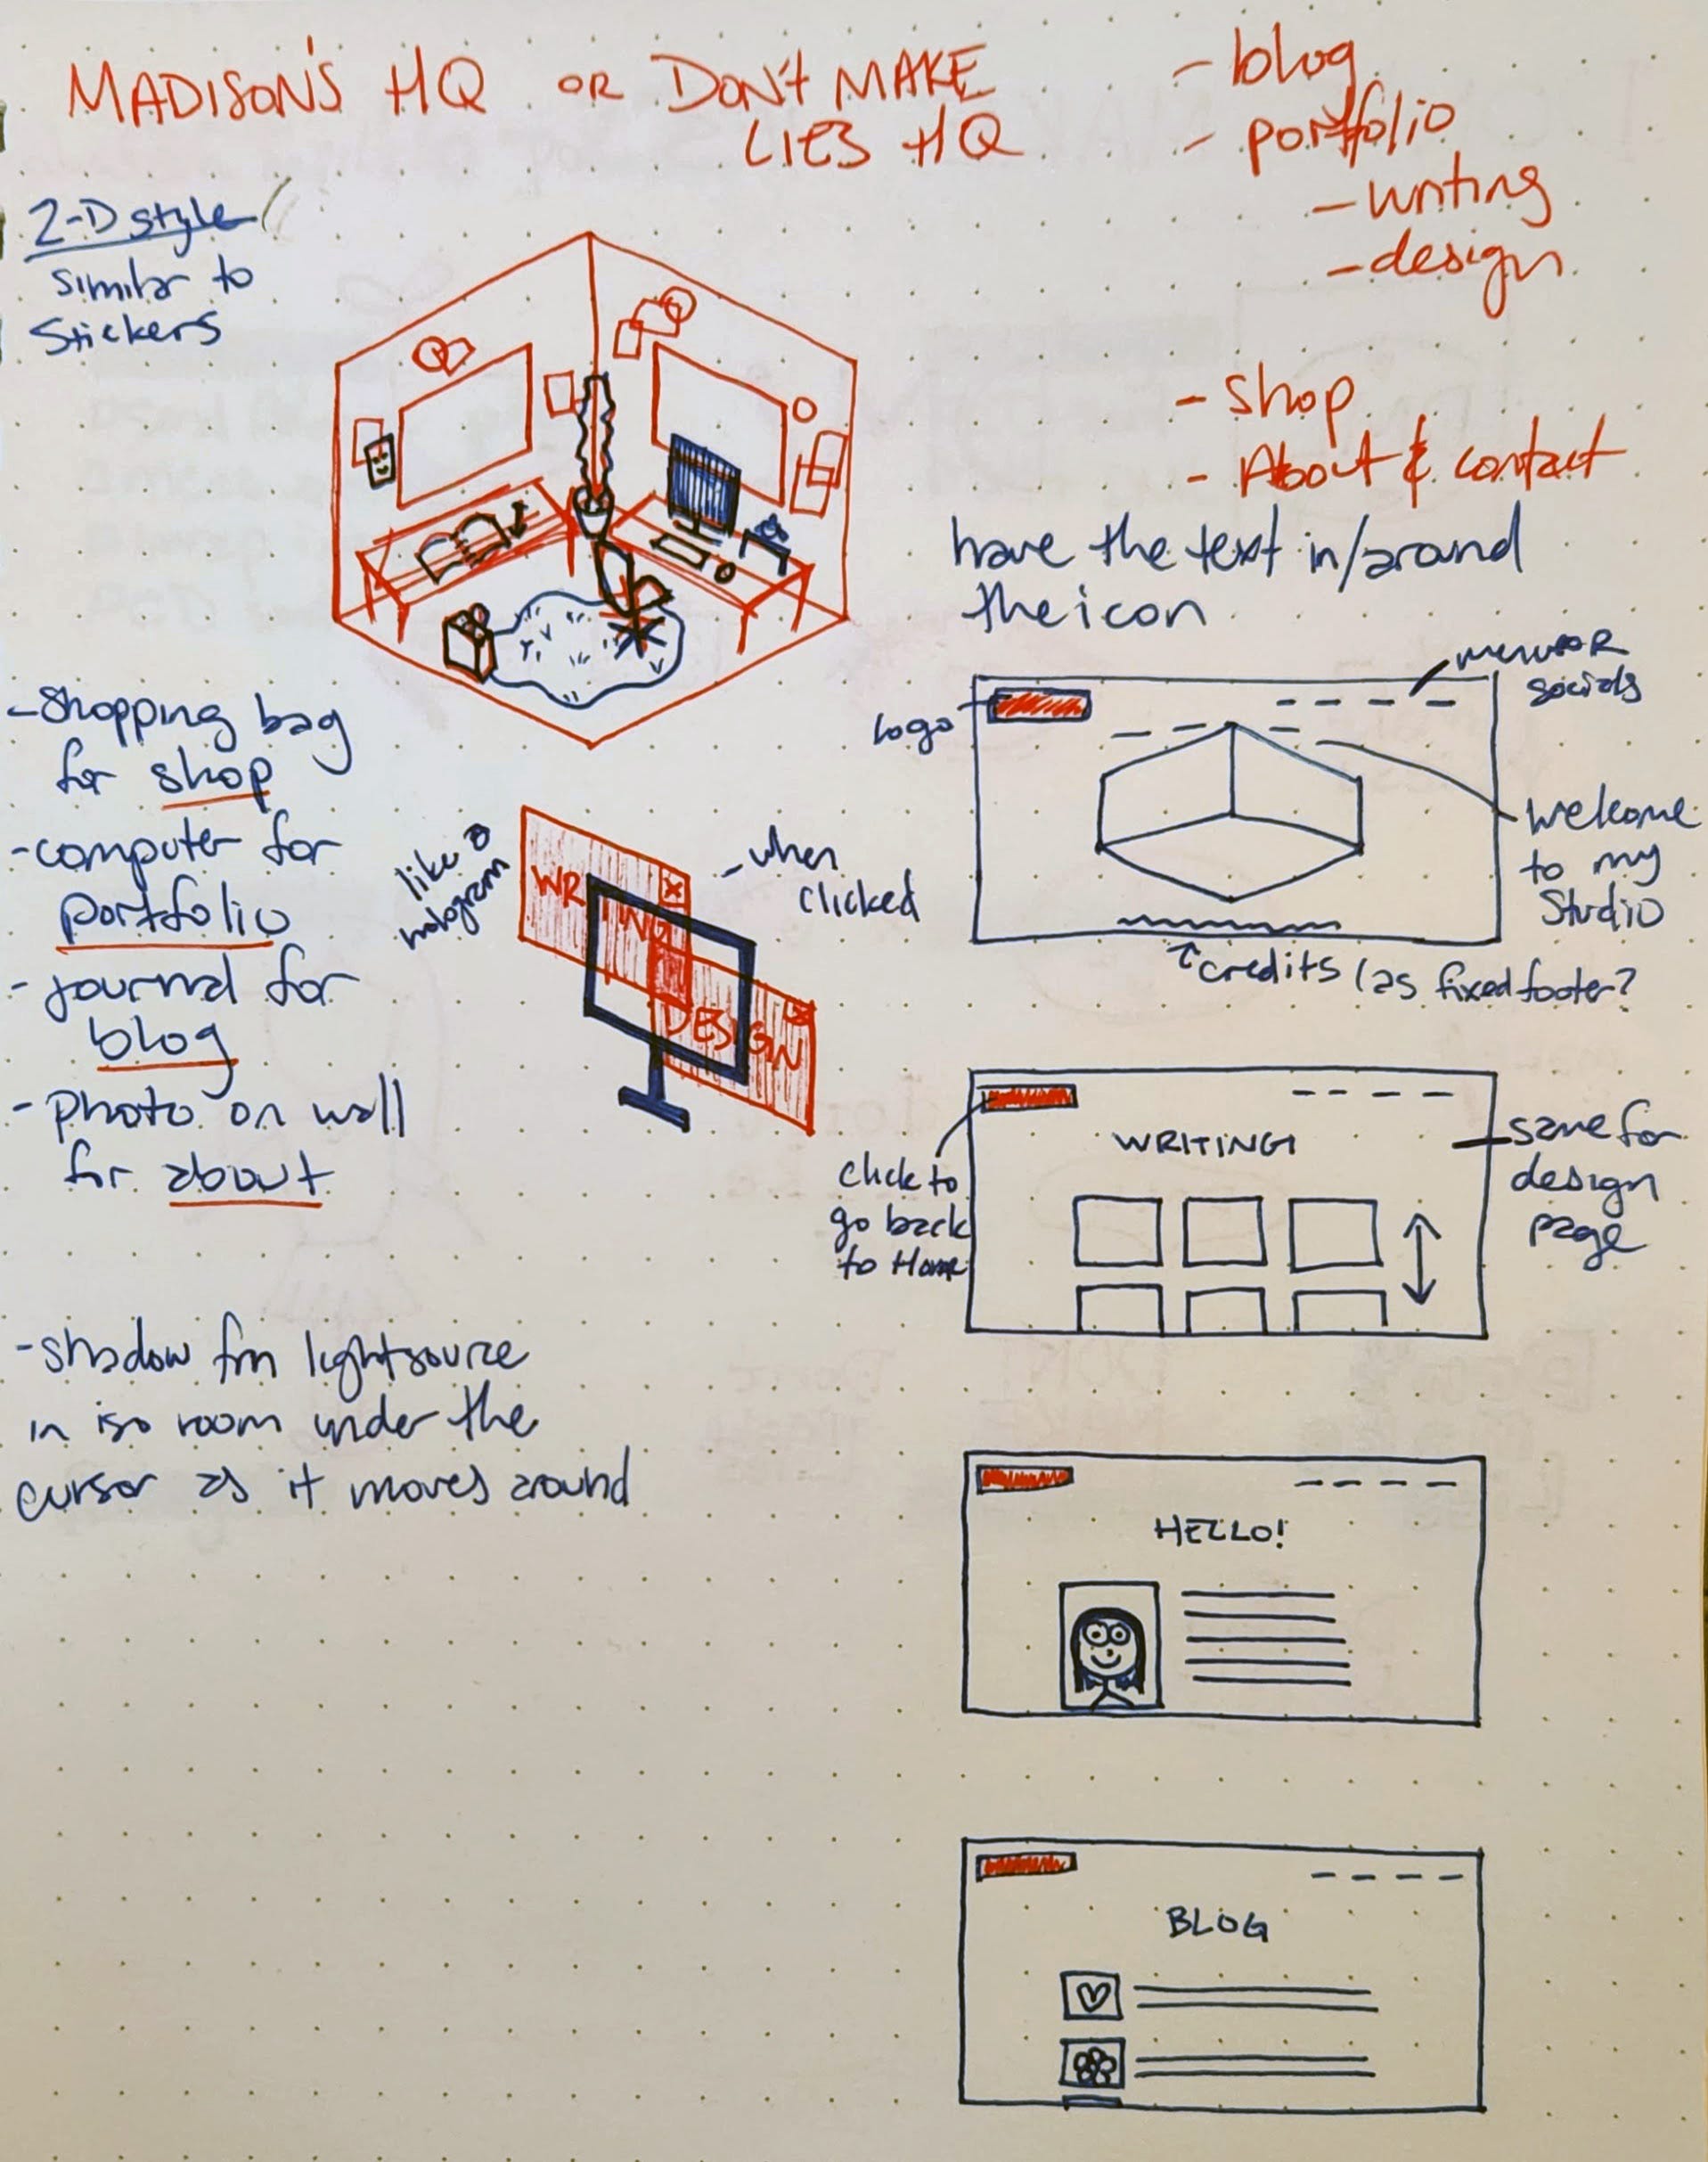 MADISON'S HQ OR DON'T MAKE
LIES HQ
- blog
- portfolio
- writing
- design
2-D style
similar to
stickers
- shop
- About & contact
have the text in/around
the icon
- shopping bag
for shop
- computer for
portfolio
- journal for
blog
- photo on wall
for about
like a
hologram
WRITING
x
DESIGN
x
- when
clicked
menu OR
socials
logo
welcome
to my
studio
credits (as fixed footer?
WRITING
same for
design
page
click to
go back
to Home
- shadow fm lightsource
in iso room under the
cursor as it moves around
HELLO!
BLOG